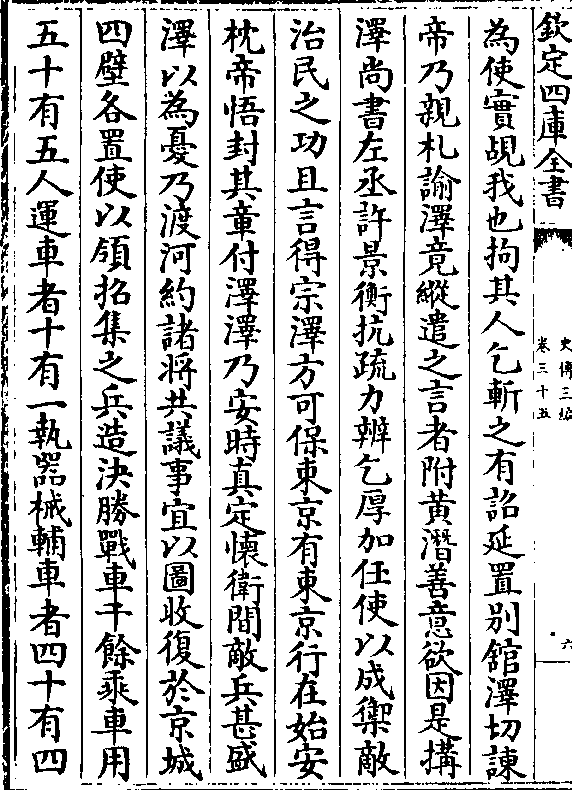 欽定四庫全書
史傳三編
卷三十五
六
為使實覘我也拘其人乞斬之有詔延置别舘澤切諫
帝乃親札諭澤竟縱遣之言者附黄潛善意欲因是搆
澤尚書左丞許景衡抗疏力辨乞厚加任使以成禦敵
治民之功且言得宗澤方可保東京有東京行在始安
枕帝悟封其章付澤澤乃安時真定懷衛間敵兵甚盛
澤以為憂乃渡河約諸将共議事宜以圖收復於京城
四壁各置使以領招集之兵造決勝戰車千餘乘車用
五十有五人運車者十有一執器械輔車者四十有四